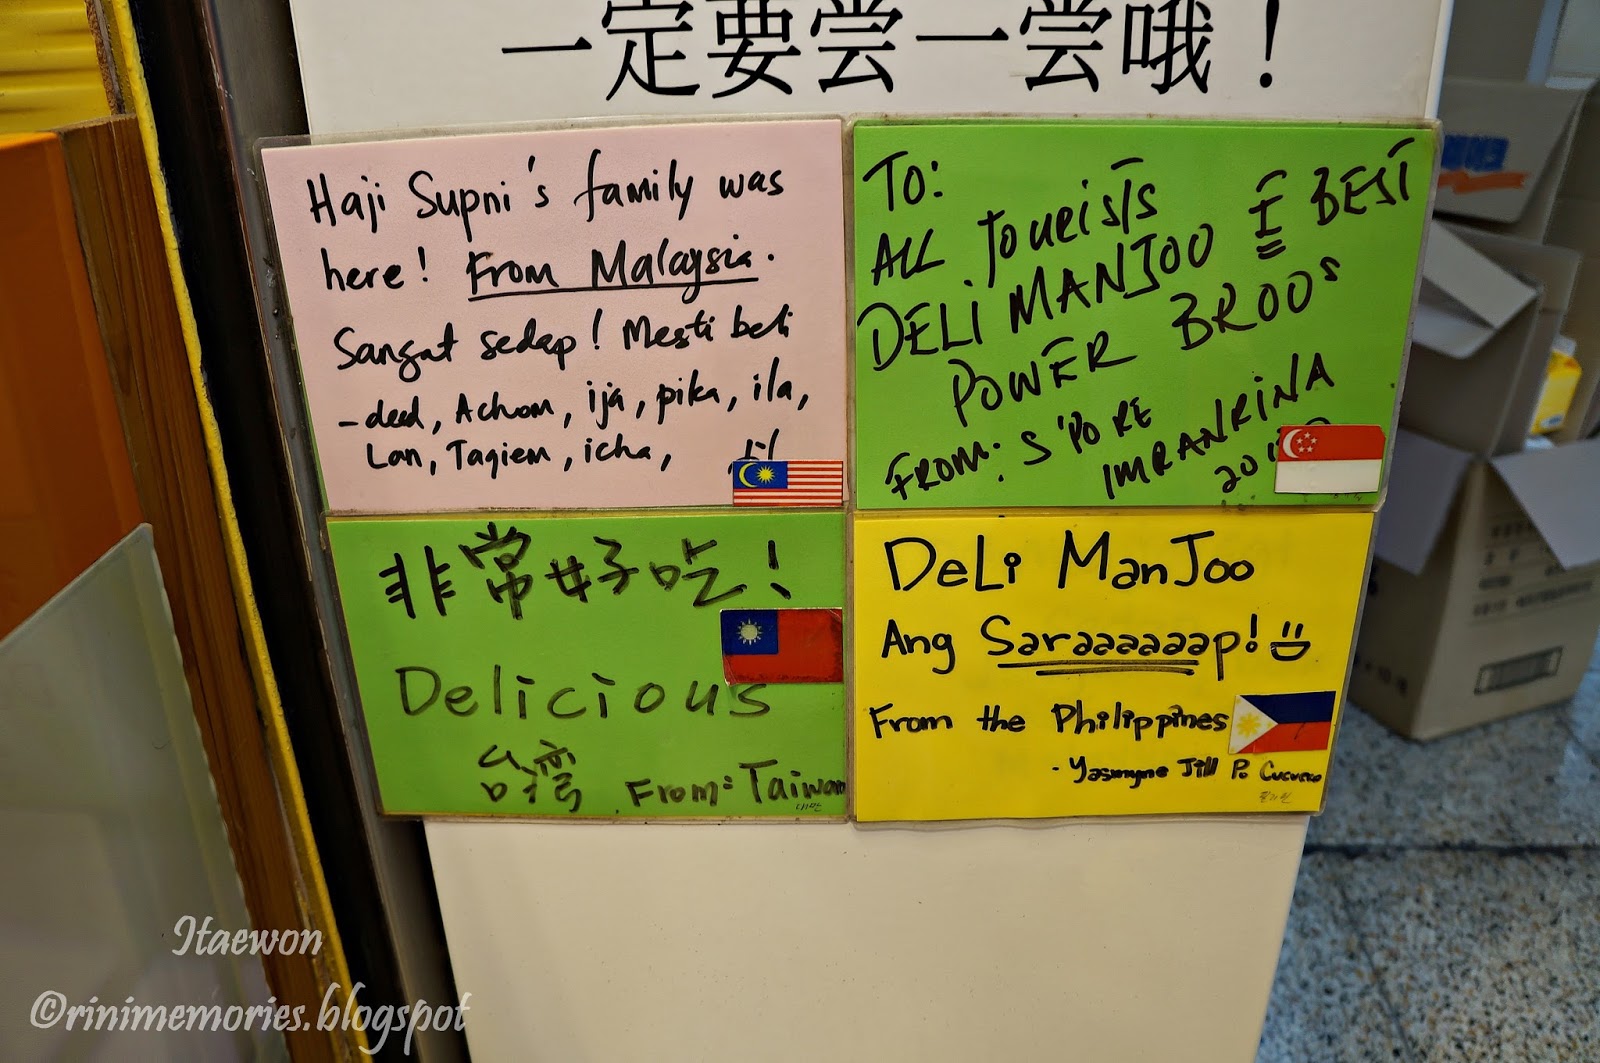 一定要尝一尝哦！
Haji Supni's family was
here! From Malaysia.
Sangat sedap! Mesti beli
Achom, ija, pika, ila,
Lan, Tagiem, icha,
TO:
ALL TOURISTS
DELIMANJOO E BEST
POWER BROO's
FROM: S'PORE
IMRANRINA
非常好吃！
Delicious
台灣 From: Taiwan
대만
DeLi ManJoo
Ang Saraaaaaaap!
From the Philippines
필리핀
Itaewon
©rinimemories.blogspot